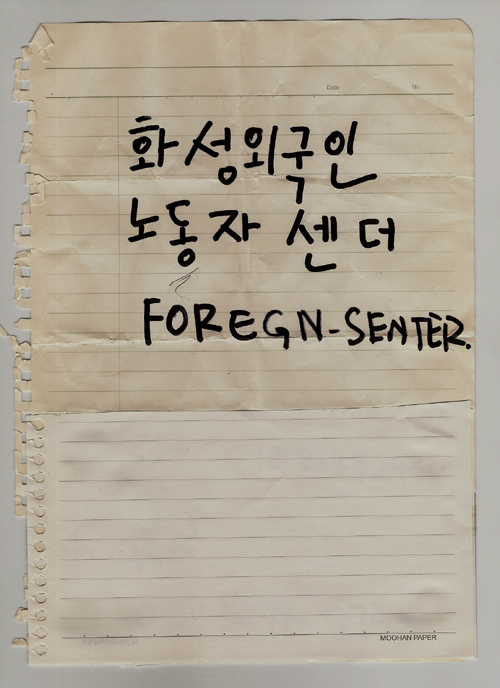 Date
No.
화성외국인
노동자 센터
FOREGN-SENTER.
MOOHAN PAPER